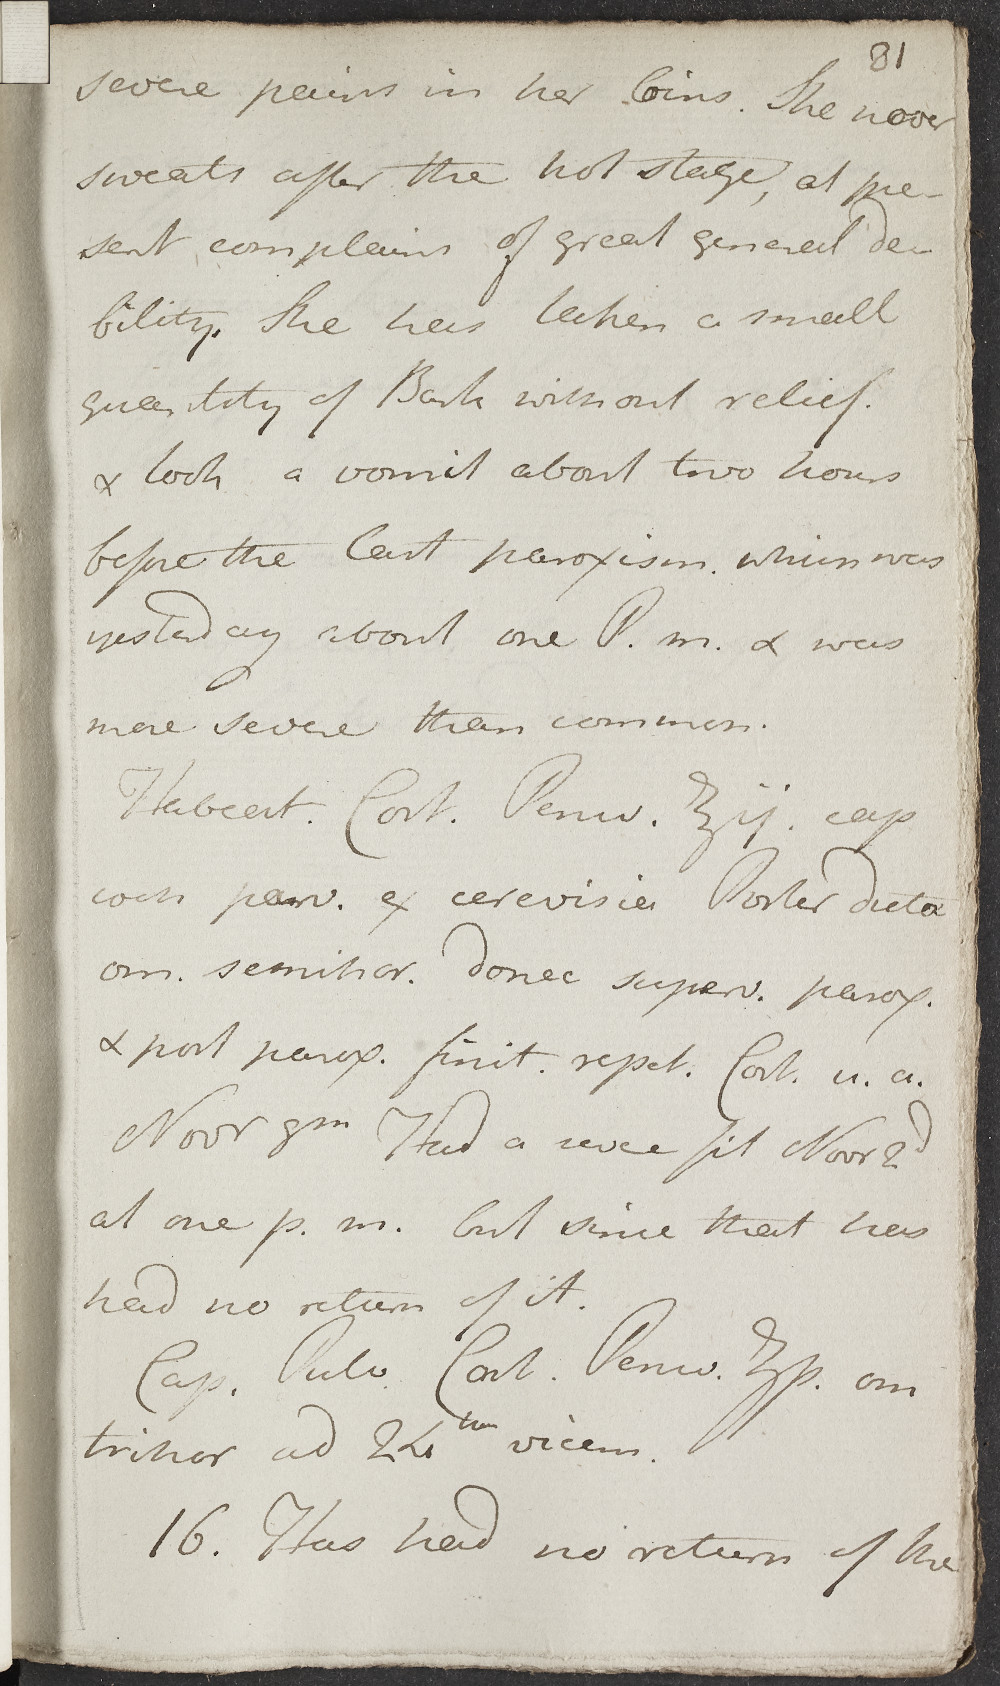 81
severe pains in her Loins. She never
sweats after the hot stage, at pre-
sent complains of great general de-
bility. She has taken a small
quantity of Bark without relief.
& took a vomit about two hours
before the last paroxism. which was
yesterday about one P. m. & was
more severe than common.
Habeat. Cort. Peruv. ℥ij. cap
coch parv. ex cerevisia Porter dicta
om. semihor. donec superv. parox.
& post parox. finit. repet. Cort. u. a.
Novr 9m Had a severe fit Novr 2d
at one p. m. but since that has
had no return of it.
Cap. Pulv. Cort. Peruv. ʒſs. om
trihor ad 24tam vicem.
16. Has had no return of the